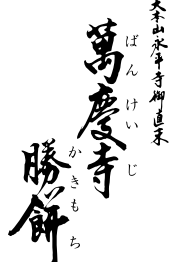 大本山永平寺御直末
萬慶寺
ばんけいじ
勝餅
かきもち